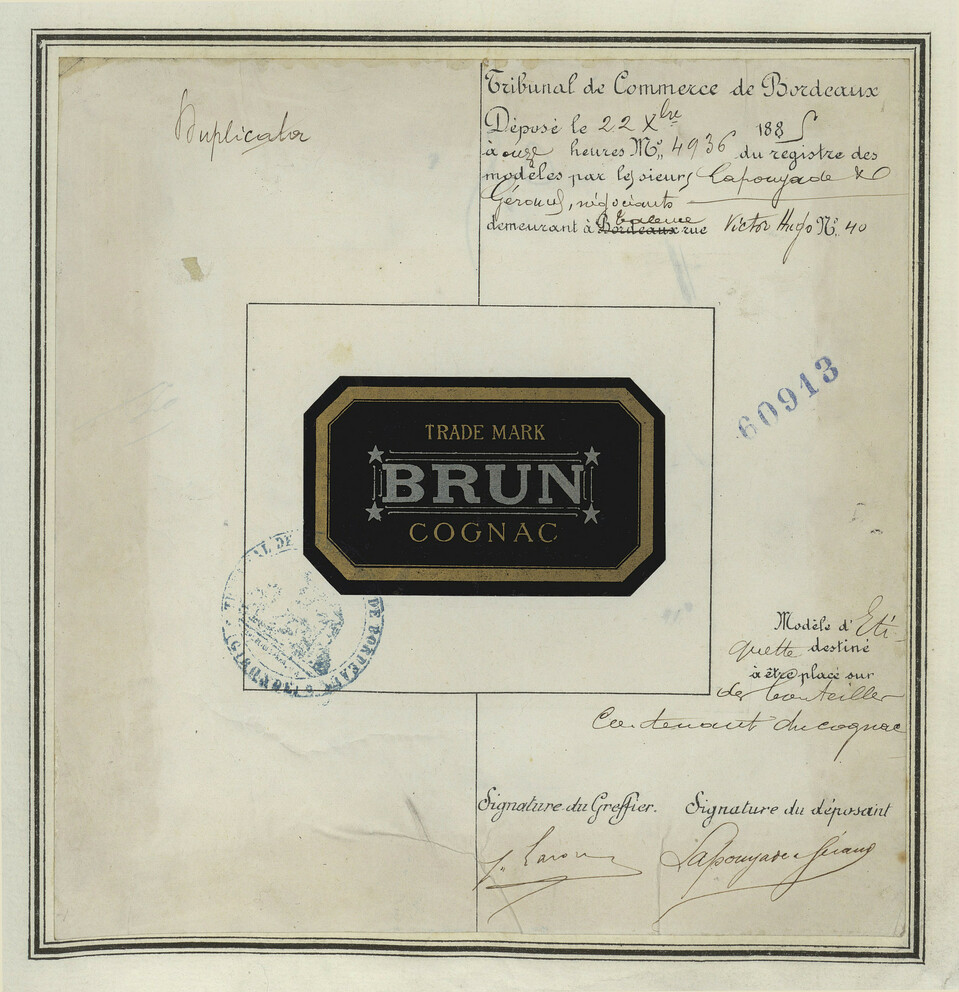 Duplicata
Tribunal de Commerce de Bordeaux
Déposé le 22 Xbre 1885
à onze heures M. N° 4936 du registre des
modèles par les sieurs Lapouyade &
négociants
demeurant à Bordeaux Talence rue Victor Hugo N° 40
60913
TRADE MARK
BRUN
COGNAC
TRIBUNAL DE DE BORDEAUX (GIRONDE)
Modèle d'Eti-
quette destiné
à être placé sur
des bouteilles
contenant du cognac
Signature du Greffier.
Signature du déposant
Lapouyade &